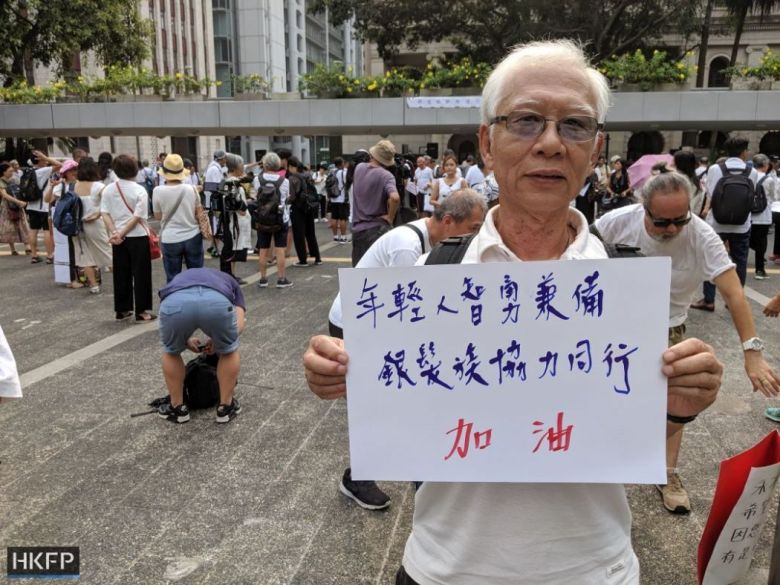 年輕人智勇兼備
銀髮族協力同行
加油
HKFP